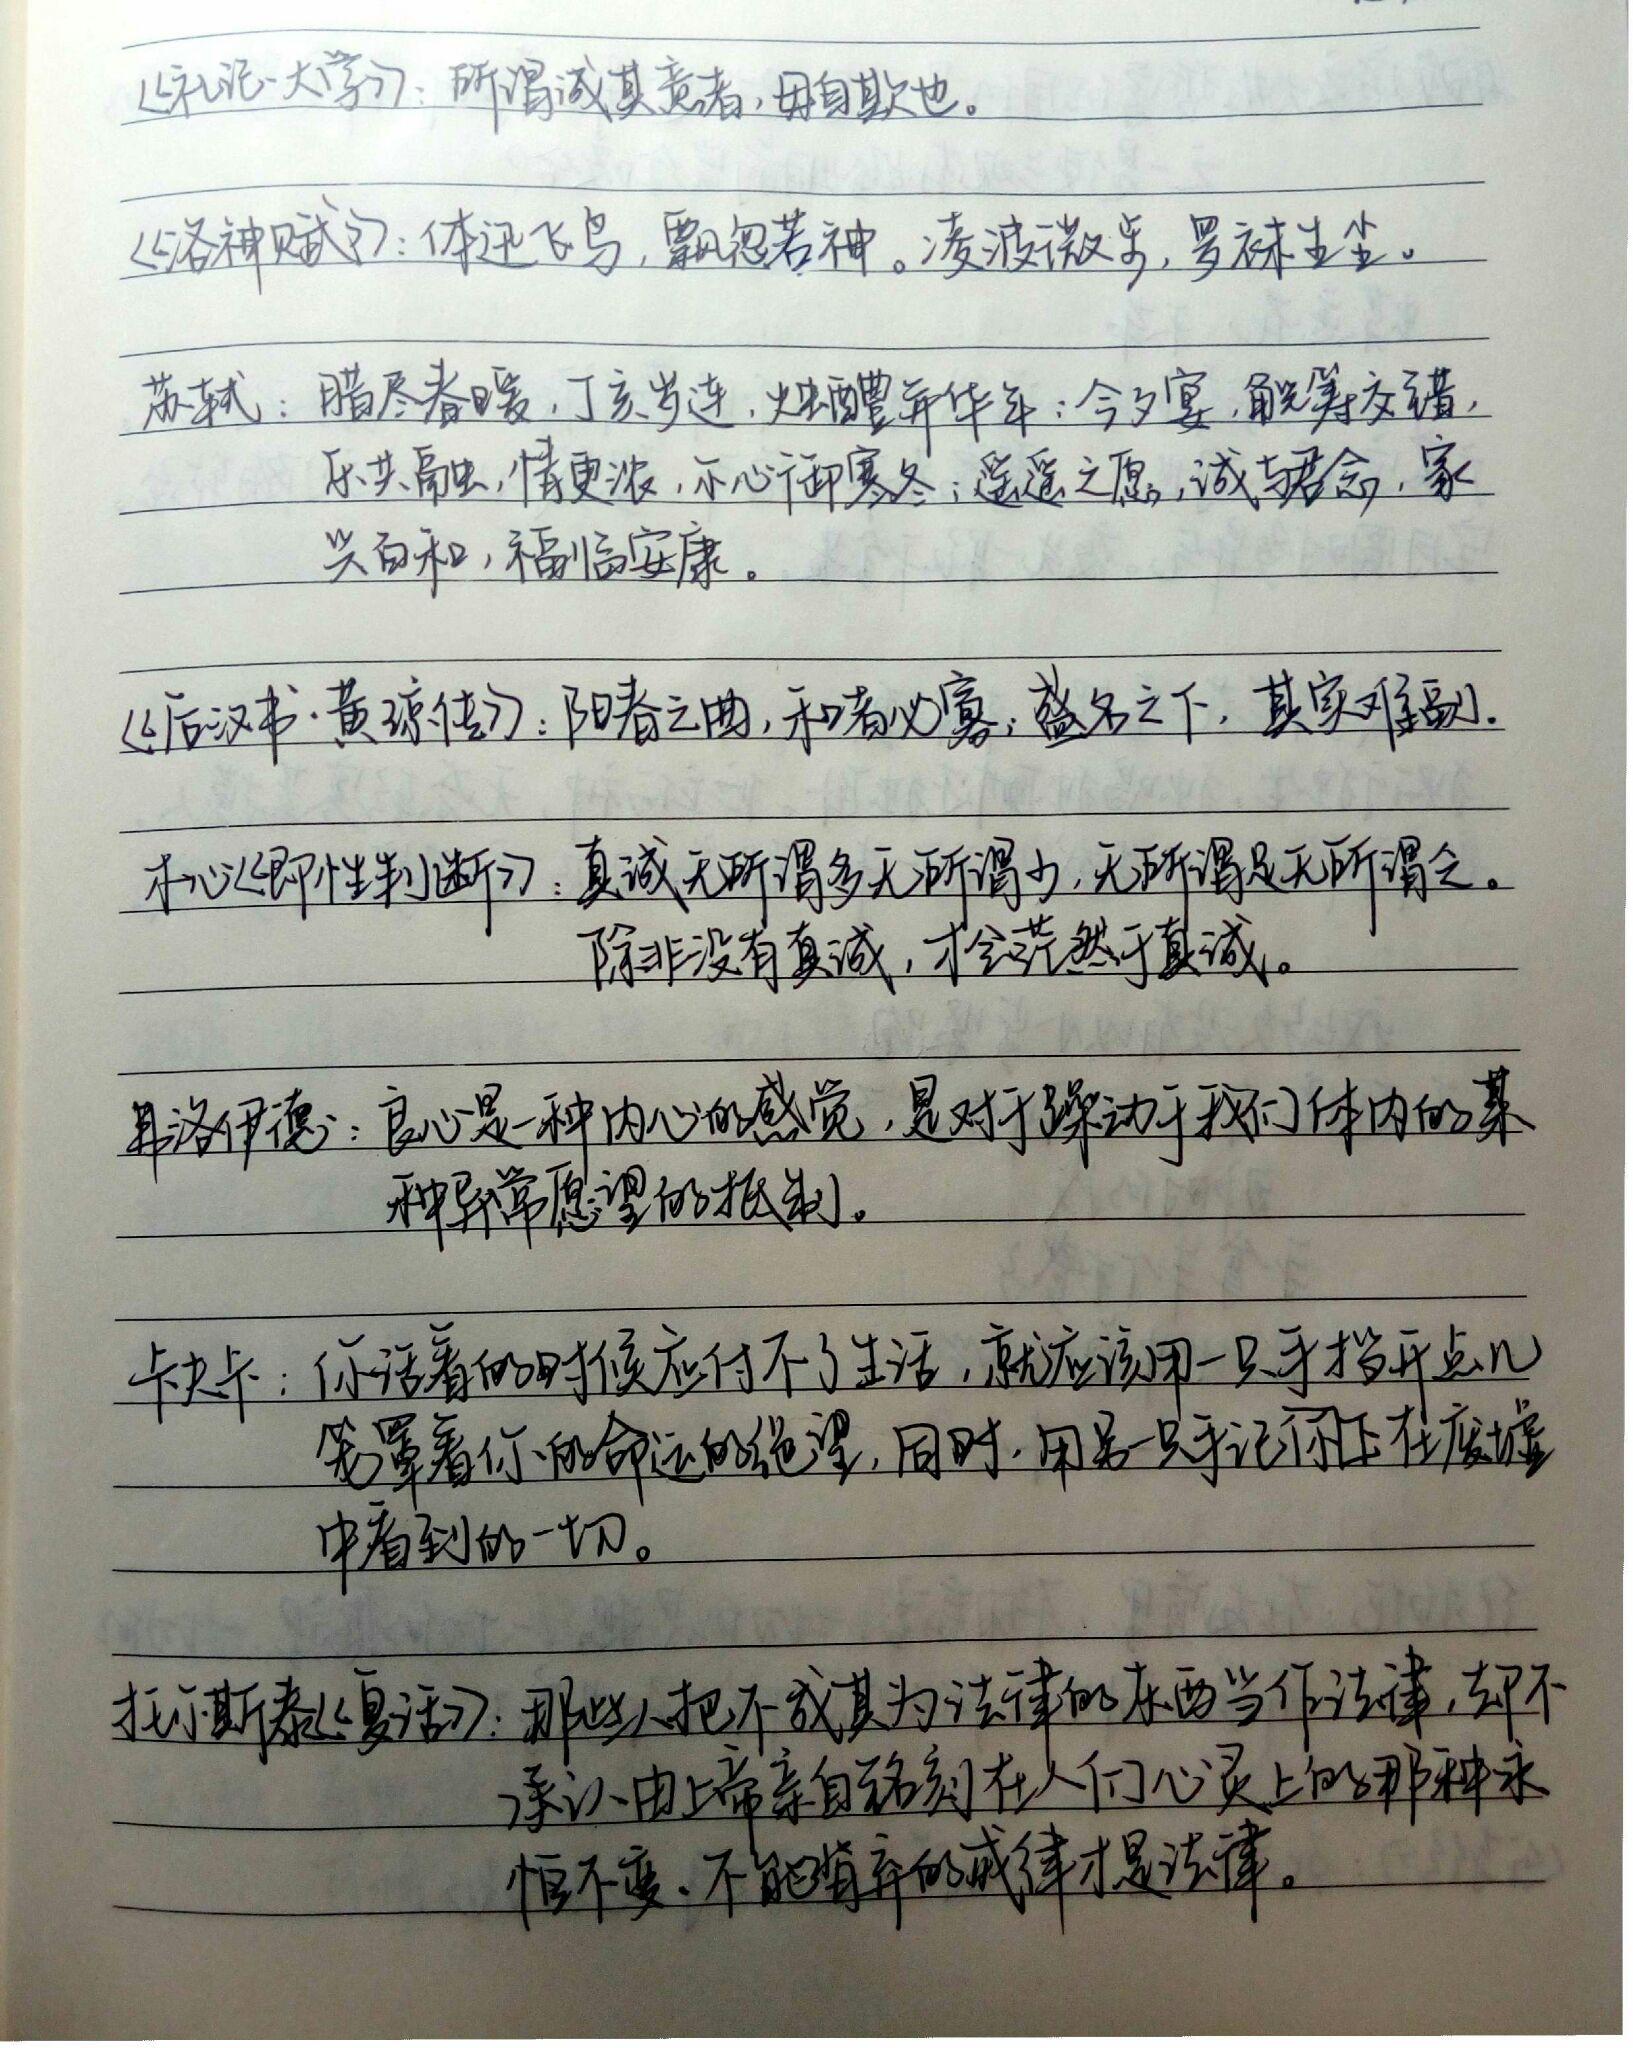 《礼记·大学》：所谓诚其意者，毋自欺也。
《洛神赋》：体迅飞凫，飘忽若神。凌波微步，罗袜生尘。
苏轼：腊尽春暖，丁亥岁连，烛醴弃华年；今夕宴，觥筹交错，
乐共融，情更浓，尔心御寒冬；遥遥之愿，诚与君念，家
兴百和，福临安康。
《后汉书·黄琼传》：阳春之曲，和者必寡；盛名之下，其实难副.
木心《即性判断》：真诚无所谓多无所谓少，无所谓足无所谓乏。
除非没有真诚，才会茫然于真诚。
弗洛伊德：良心是一种内心的感觉，是对于躁动于我们体内的某
种异常愿望的抵制。
卡夫卡：你活着的时候应付不了生活，就应该用一只手挡开点儿
笼罩着你的命运的绝望，同时，用另一只手记你下在废墟
中看到的一切。
托尔斯泰《复活》：那些人把不成其为法律的东西当作法律，却不
承认由上帝亲自铭刻在人们心灵上的那种永
恒不变、不能背弃的戒律才是法律。